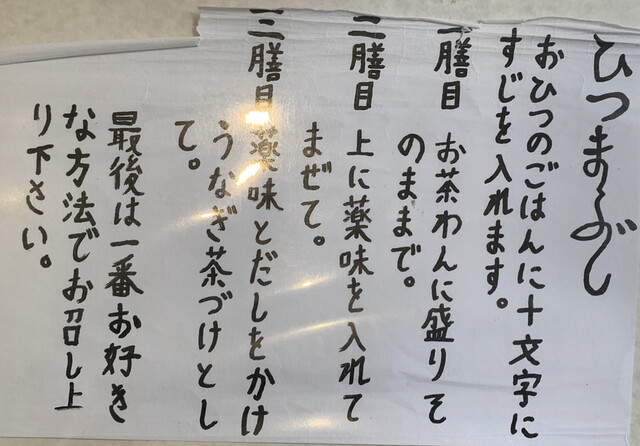 ひつまぶし
おひつのごはんに十文字に
すじを入れます。
一膳目 お茶わんに盛りそ
のままで。
二膳目 上に薬味を入れて
まぜて。
三膳目 薬味とだしをかけ
うなぎ茶づけとし
て。
最後は一番お好き
な方法でお召し上
り下さい。